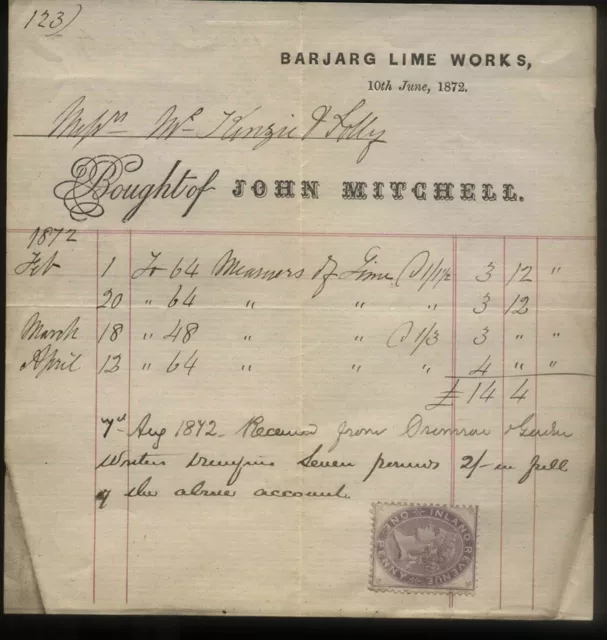 123)
BARJARG LIME WORKS,
10th June, 1872.
Messrs McKinzie &
Bought of JOHN MITCHELL.
1872
Feb 1 To 64 Measures of Lime @ 1/1½ 3 12 "
20 " 64 " " 3 12
March 18 " 48 " " @ 1/3 3 " "
April 13 " 64 " " " 4 " "
£14 4
7th Aug 1872 Received from
Seven pounds 2/- in full
of the above account.
INLAND REVENUE
ONE PENNY